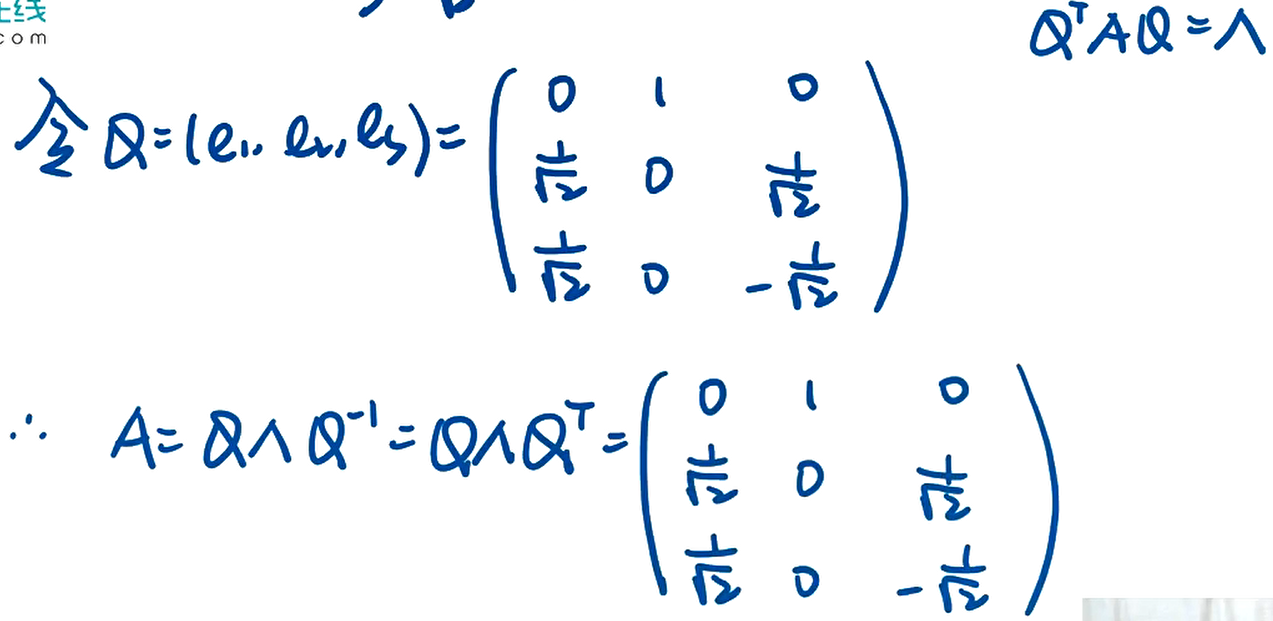 上线
com
QᵀAQ=Λ
令 Q=(e₁, e₂, e₃)=
0 1 0
1/√2 0 1/√2
1/√2 0 -1/√2
∴ A=QΛQ⁻¹=QΛQᵀ=
0 1 0
1/√2 0 1/√2
1/√2 0 -1/√2